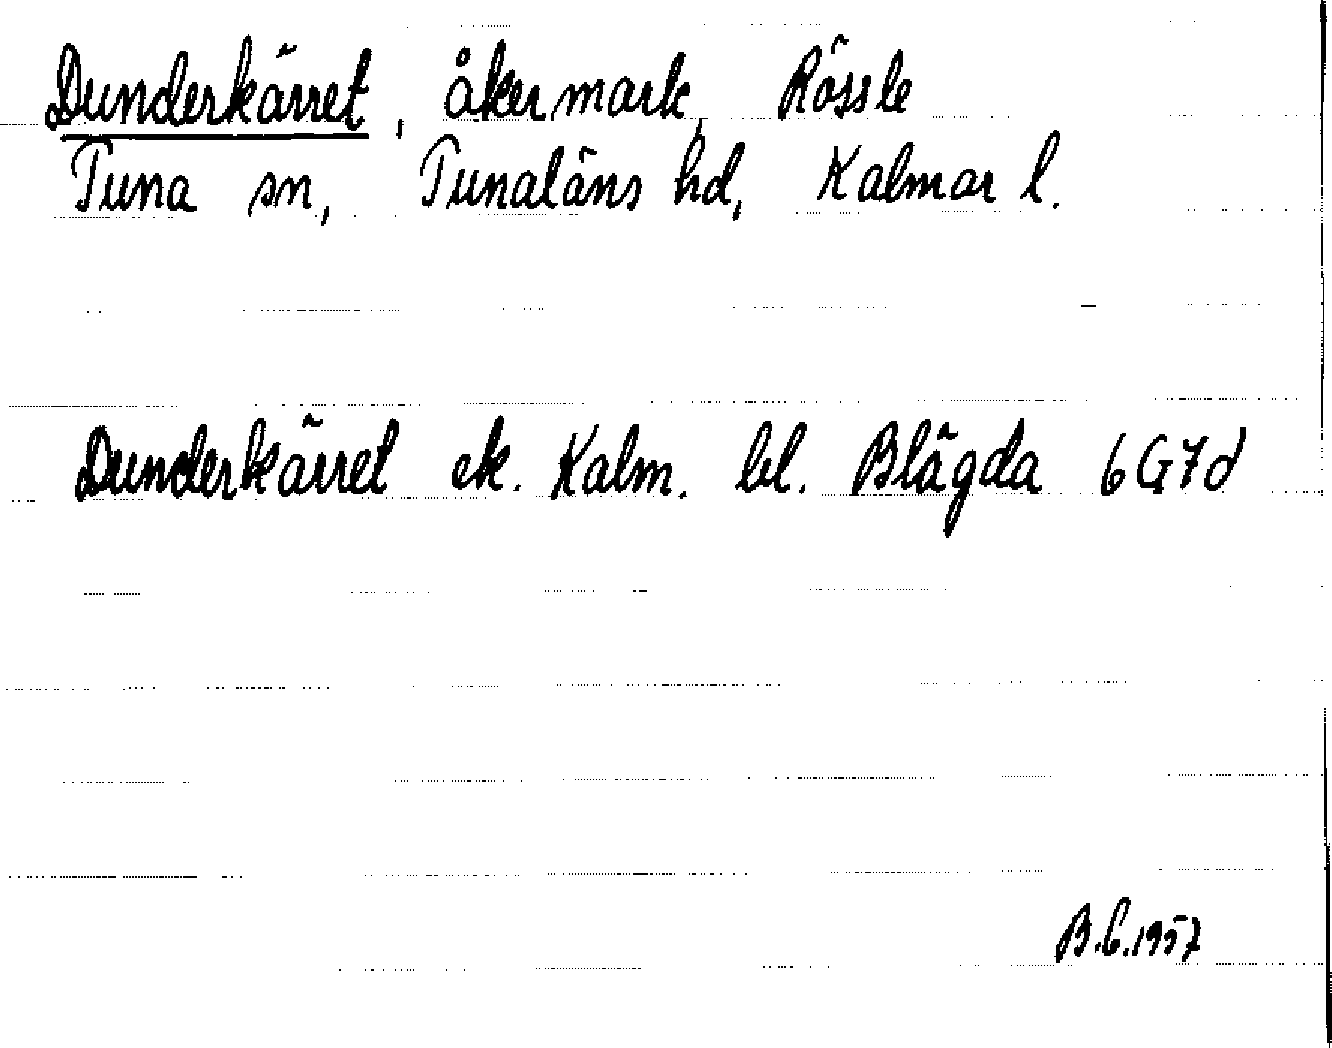 Dunderkärret, åkermark, Rössle
Tuna sn, Tunaläns hd, Kalmar l.
Dunderkärret ek. Kalm. bl. Blägda 6G7d
B.L.1957